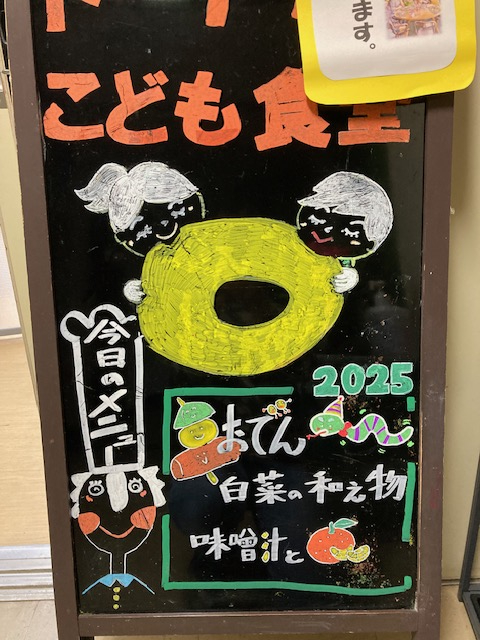 ます。
こども食堂
今日のメニュー
2025
おでん
白菜の和え物
味噌汁と